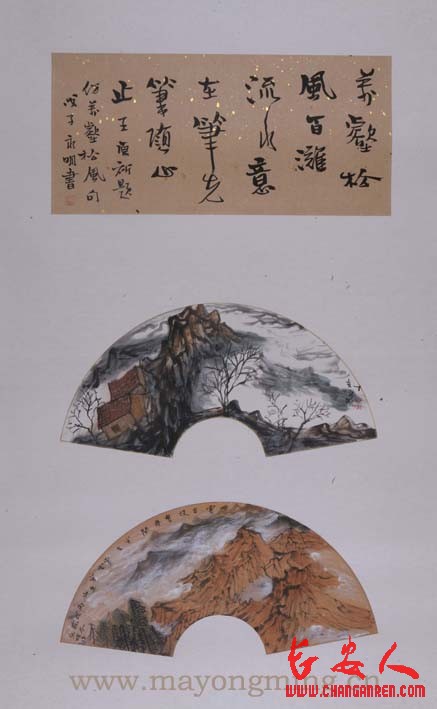 萬壑松
風百灘
流水意
在筆先
筆隨心
止王原祁題
仿萬壑松風句
戊子永明書
www.mayongming.cn
长安人
WWW.CHANGANREN.COM